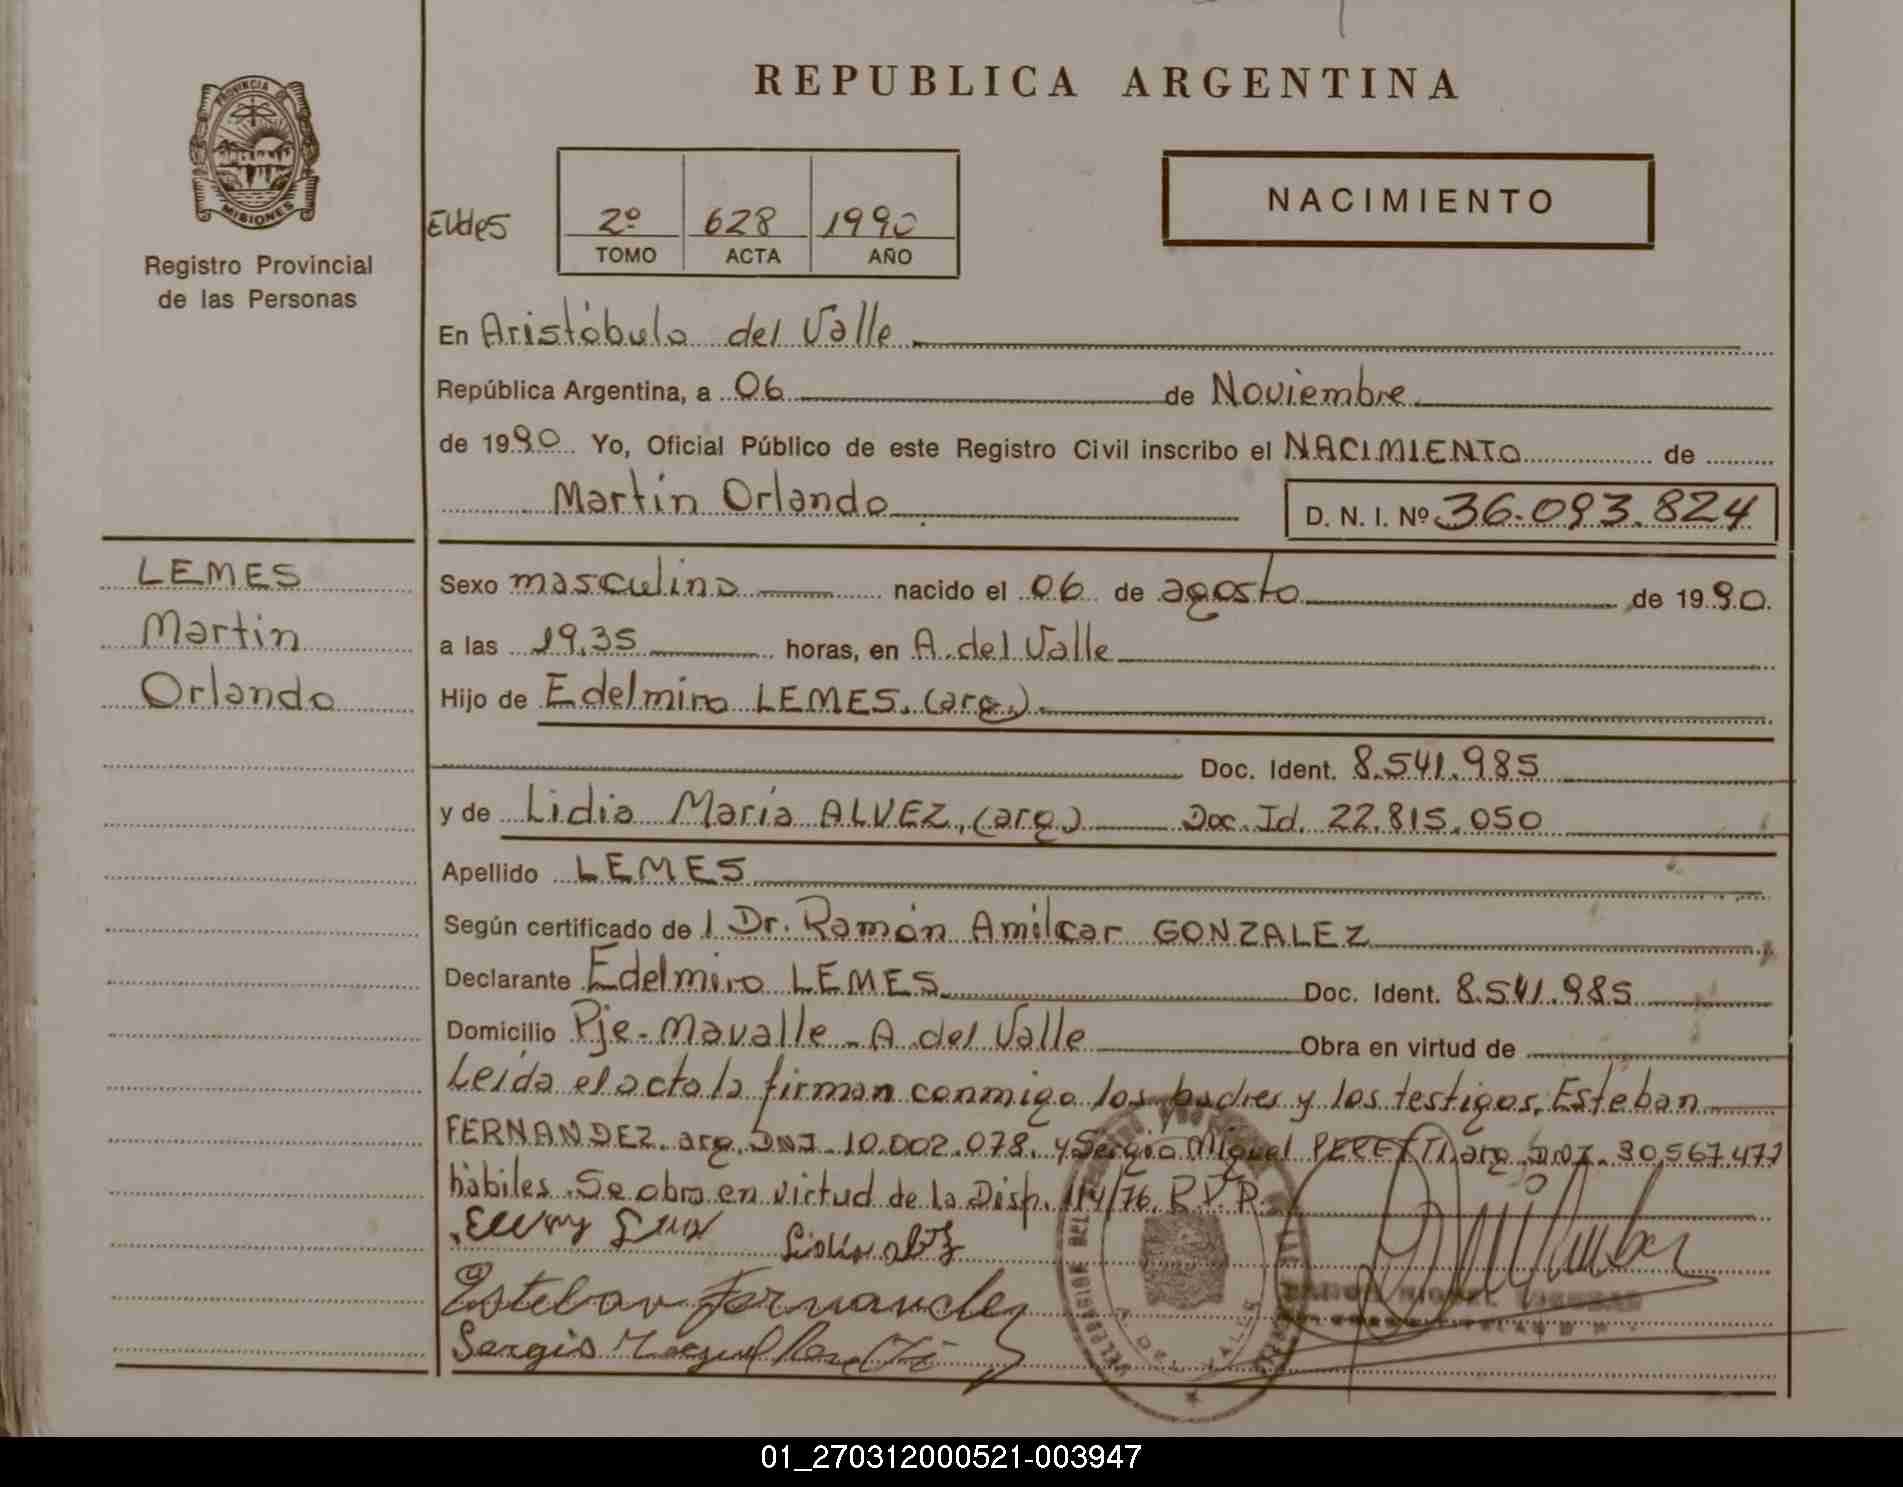 REPUBLICA ARGENTINA
PROVINCIA DE
MISIONES
Registro Provincial
de las Personas
NACIMIENTO
2º 628 1990
TOMO ACTA AÑO
En Aristóbulo del Valle
República Argentina, a 06 de Noviembre
de 1990 Yo, Oficial Público de este Registro Civil inscribo el NACIMIENTO de
Martin Orlando
D. N. I. Nº 36.093.824
LEMES
Martin
Orlando
Sexo masculino nacido el 06 de agosto de 1990.
a las 19,35 horas, en A. del Valle
Hijo de Edelmiro LEMES, (arg.)
Doc. Ident. 8.541.985
y de Lidia María ALVEZ, (arg) Doc. Id. 22.815.050
Apellido LEMES
Según certificado de l Dr. Ramón Amilcar GONZALEZ
Declarante Edelmiro LEMES Doc. Ident. 8.541.985
Domicilio Pje. Mavalle - A. del Valle Obra en virtud de
Leída el acta la firman conmigo los padres y los testigos, Esteban
FERNANDEZ. arg. DNI. 10.002.078. y Sergio Miguel PERETTI arg. 567.477
hábiles. Se obra en virtud de la Disp. 114/76. R.P.P.
Esteban Fernandez
Sergio
01_270312000521-003947